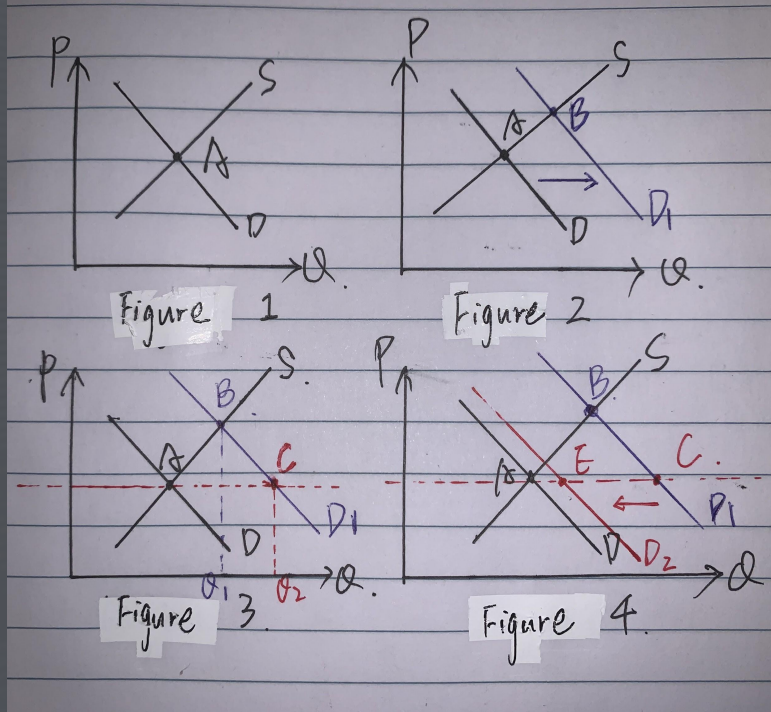 P
S
A
D
Q.
Figure 1
P
S
A
B
D
D1
Q.
Figure 2
P
S.
B
A
C
D
D1
Q1
Q2
Q.
Figure 3.
P
S
B
A
E
C.
D
D2
D1
Q
Figure 4.